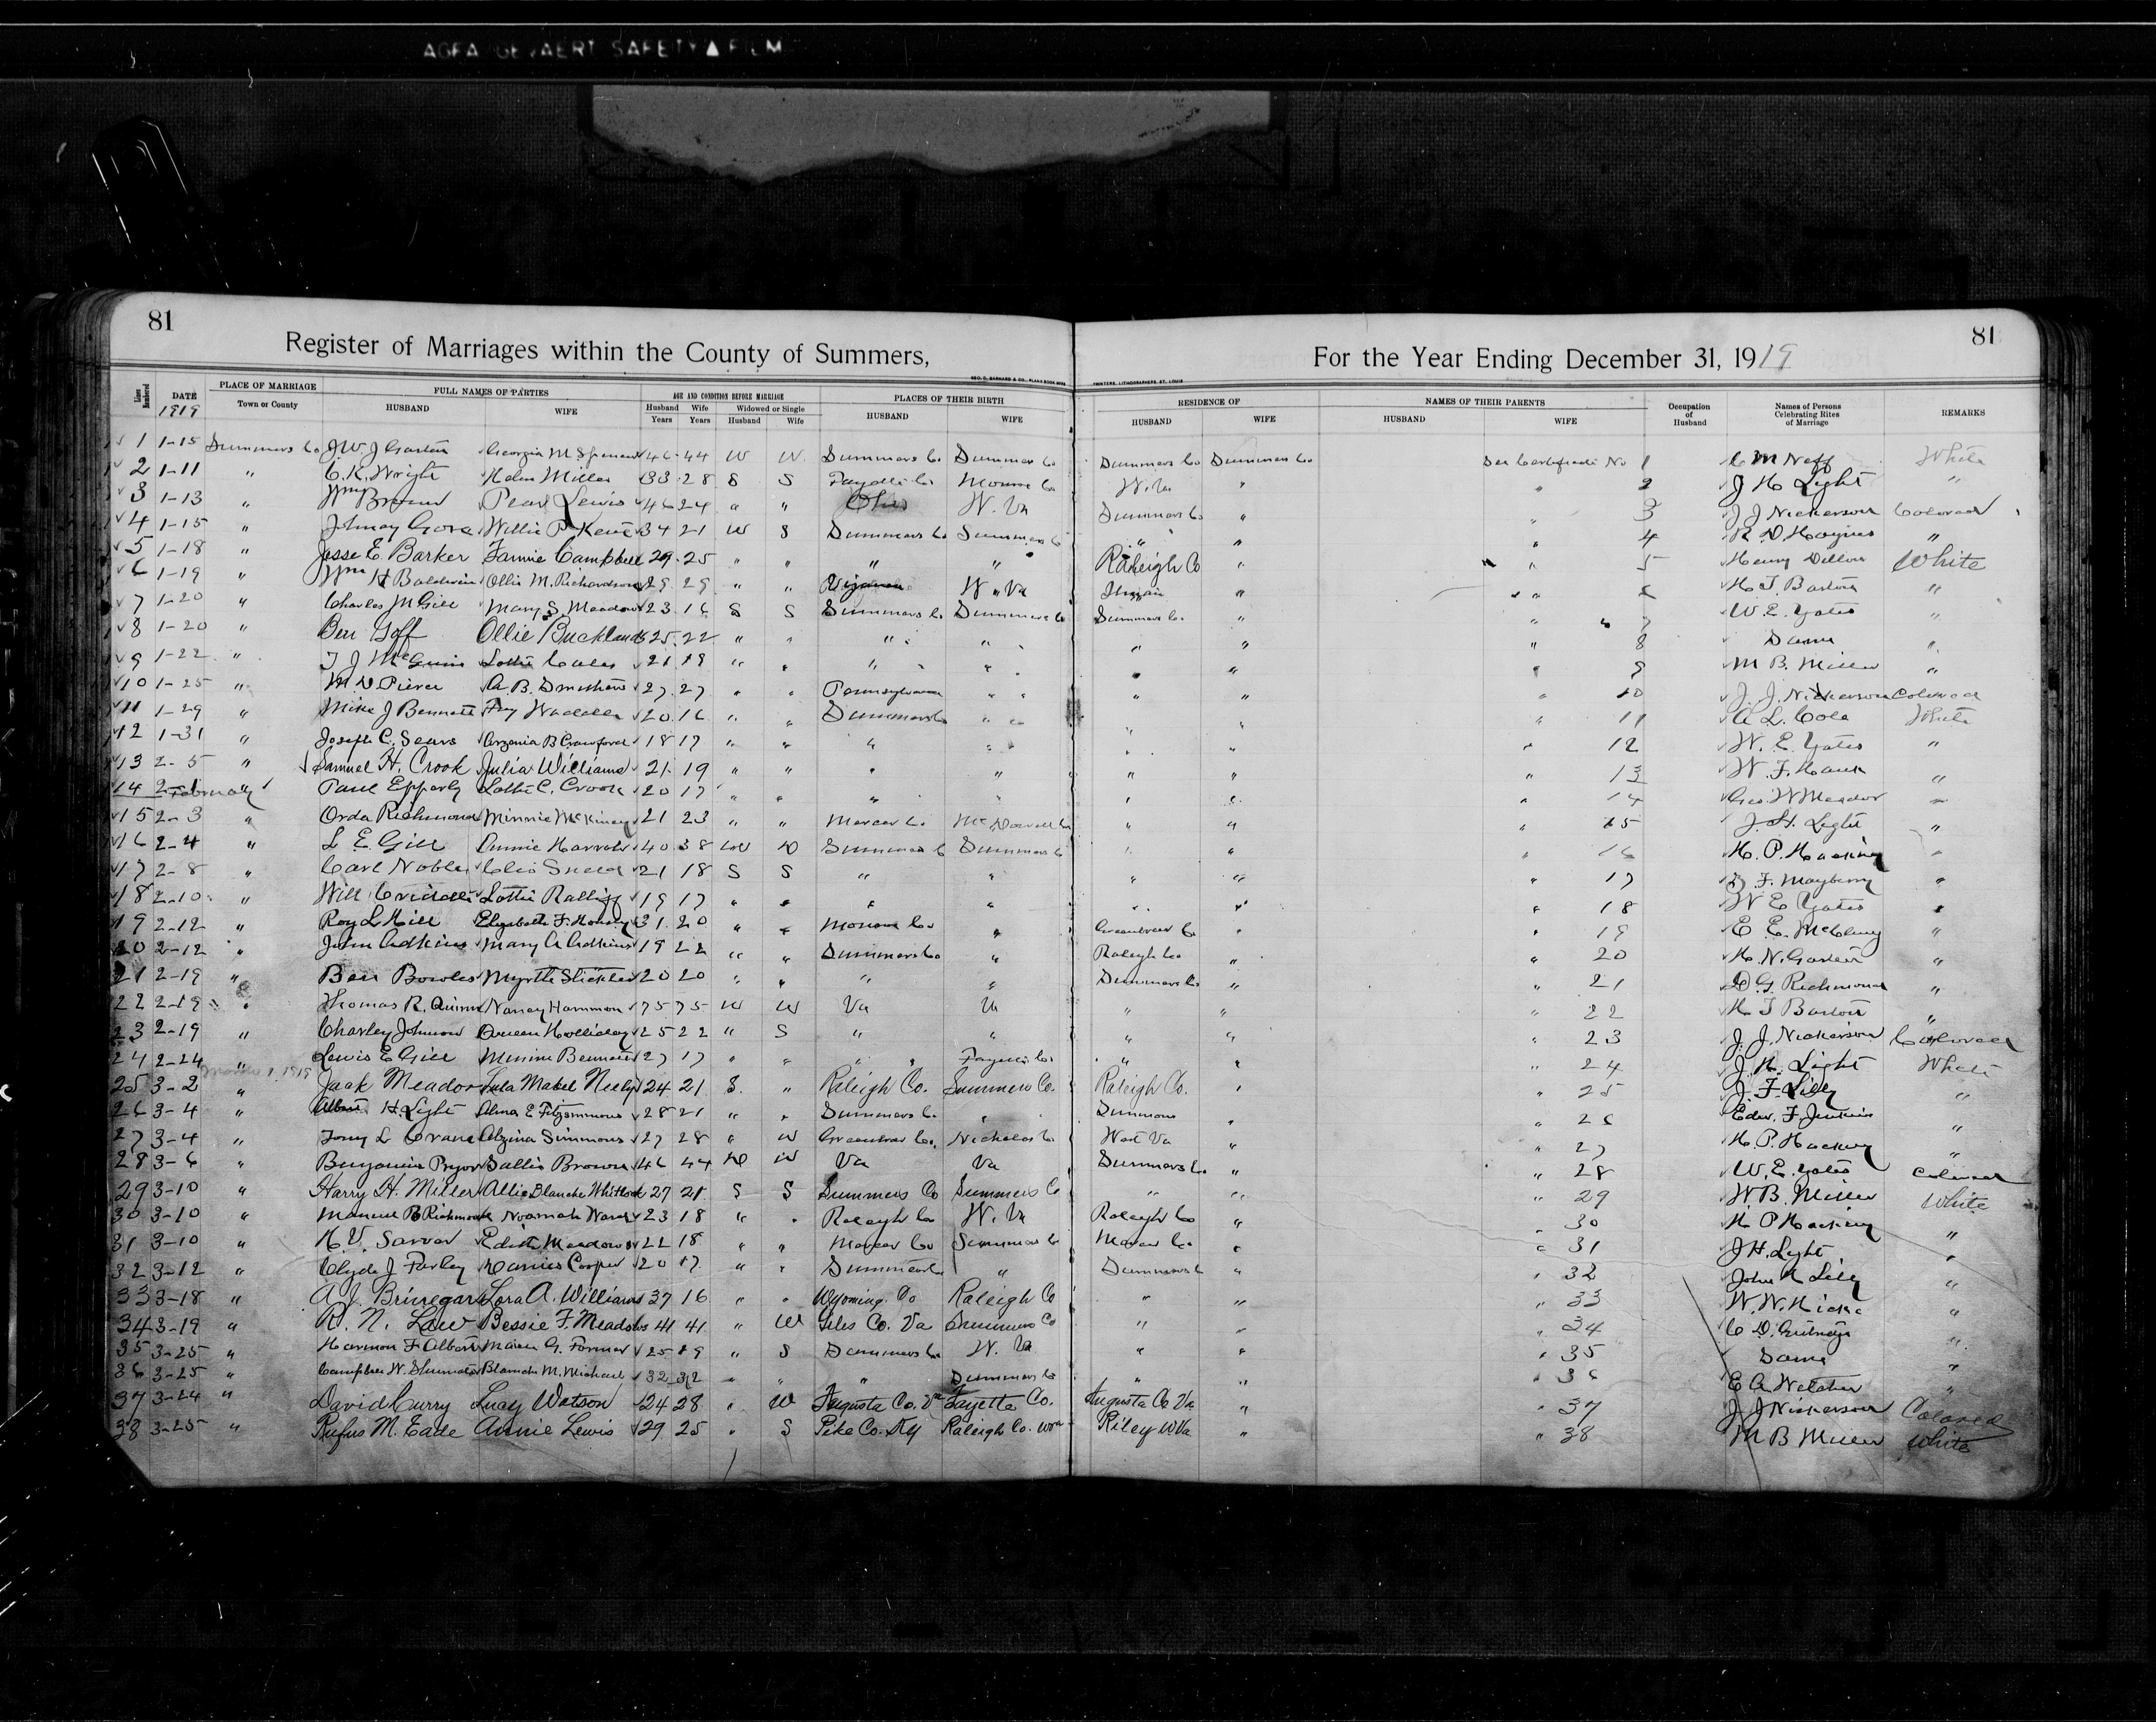 AGFA GEVAERT SAFETY▲FILM
81
81
Register of Marriages within the County of Summers,
For the Year Ending December 31, 1919
GEO. D. BARNARD & CO.
PRINTERS, LITHOGRAPHERS ST. LOUIS
Lines Numbered DATE 1919 PLACE OF MARRIAGE Town or County FULL NAMES OF PARTIES HUSBAND WIFE AGE AND CONDITION BEFORE MARRIAGE Husband Years Wife Years Widowed or Single Husband Wife PLACES OF THEIR BIRTH HUSBAND WIFE RESIDENCE OF HUSBAND WIFE NAMES OF THEIR PARENTS HUSBAND WIFE Occupation of Husband Names of Persons Celebrating Rites of Marriage REMARKS
1 1-15 Summers Co J.W.J. Georgia M 46 44 W W Summers Co Summers Co Summers Co Summers Co See Certificate No 1 C M Neff White
2 1-11 " C.K. Wright Helen Miller 33 28 S S Fayette Co Monroe Co W.Va " " 2 J H Light "
3 1-13 " Wm Brown Pearl Lewis 46 24 " " Ohio W. Va Summers Co " " 3 J J Nickerson Colored
4 1-15 " Johnny Gore Willie P Kent 34 21 W S Summers Co Summers Co " " " 4 R D Haynes "
5 1-18 " Jesse E. Barker Fannie Campbell 29 25 " " " " Raleigh Co " " 5 Henry Dillon White
6 1-19 " Wm H Baldwin Ollie M. Richardson 29 29 " " W. Va " " 6 H T Barton "
7 1-20 " Charles M Gill Mary S Meadows 23 16 S S Summers Co Summers Co Summers Co " " 7 W E Yates "
8 1-20 " Ben Goff Ollie Buckland 25 22 " " " " " " " 8 Same "
9 1-22 " T J McGuire Lottie Cales 21 19 " " " " " " " 9 M B Miller "
10 1-25 " M V Pierce A. B. 27 27 " " Pennsylvania " " " " 10 J. J. Nickerson Colored
11 1-29 " Mike J Bennett Fay Waddell 20 16 " " Summers Co " " " " 11 A L. Cole White
12 1-31 " Joseph C. Sears Arzania B Crawford 18 17 " " " " " " " 12 W. E. Yates "
13 2-5 " Samuel H. Crook Julia Williams 21 19 " " " " " " " 13 W. F. Hank "
14 February " Paul Epperly Lottie C. Crook 20 17 " " " " " " " 14 Geo W Meador "
15 2-3 " Orda Richmond Minnie McKinney 21 23 " " Mercer Co McDowell Co " " " 15 J. H. Light "
16 2-4 " L E Gill Annie Harrah 40 38 W Summers Co Summers Co " " " 16 H. P. Hacking "
17 2-8 " Carl Nobles Clio Sneed 21 18 S S " " " " " 17 F. Mayberry "
18 2-10 " Will Lottie 19 17 " " " " " " " 18 W E Yates "
19 2-12 " Roy L Hill Elizabeth F. 31 20 " " Monroe Co " Greenbrier Co " " 19 E E. McClung "
20 2-12 " John Adkins Mary A Adkins 19 22 " " Summers Co " Raleigh Co " " 20 H. N. Garten "
21 2-19 " Ben Bowles Myrtle 20 20 " " " " Summers Co " " 21 D G Richmond "
22 2-19 " Thomas R. Quinn Nancy Hammon 75 75 W W Va Va " " " 22 H T Barton "
23 2-19 " Charley Johnson Queen Holliday 25 22 " S " " " " " 23 J. J. Nickerson Colored
24 2-24 " Lewis E Gill Minnie Bennett 27 17 " " " Fayette Co " " " 24 J. H. Light White
March 1, 1919
25 3-2 " Jack Meador Lula Mabel Neely 24 21 S " Raleigh Co. Summers Co. Raleigh Co. " " 25 J. F. Lilly "
26 3-4 " Albert H. Light Alma E Fitzsimmons 28 21 " " Summers Co " Summers " " 26 Edw. F Jenkins "
27 3-4 " Tony L Crane Alzina Simmons 27 28 " W Greenbrier Co. Nicholas Co West Va " " 27 H. P. Hacking "
28 3-6 " Benjamin Pryor Sallie Brown 46 44 W Va Va Summers Co " " 28 W. E. Yates Colored
29 3-10 " Harry H. Miller Allie Blanche Whitlock 27 21 S S Summers Co Summers Co " " " 29 W B. Miller White
30 3-10 " Richmond Noamah Ward 23 18 " " Raleigh Co W. Va Raleigh Co " " 30 H P Hacking "
31 3-10 " H. V. Sarver Edith Meadows 22 18 " " Mercer Co Summers Co Mercer Co " " 31 J H. Light "
32 3-12 " Clyde J Farley Cooper 20 17 " " Summers Co " Summers Co " " 32 John N Lilly "
33 3-18 " A J. Brinegar Lora A. Williams 37 16 " " Wyoming Co Raleigh Co " " " 33 W. W. Hicks "
34 3-19 " R. N. Law Bessie F. Meadows 41 41 " W Giles Co. Va Summers Co " " " 34 C D. "
35 3-25 " Harmon F Albert G. Farmer 25 19 " S Summers Co W. Va " " " 35 Same "
36 3-25 " Campbell W. Shumate Blanche M. Michael 32 32 " " " Summers Co " " " 36 E A "
37 3-24 " David Curry Lucy Watson 24 28 " W Augusta Co. Va Fayetta Co. Augusta Co Va " " 37 J J Nickerson Colored
38 3-25 " Rufus M. Eade Annie Lewis 29 25 " S Pike Co. Ky Raleigh Co. Riley WVa " " 38 M B Miller White